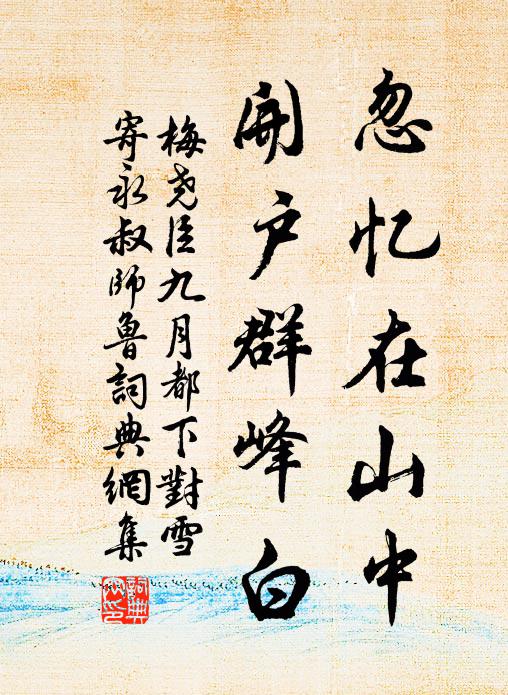 忽忆在山中
開户群峰白
梅尧臣九月都下對雪
寄永叔師魯詞典網集